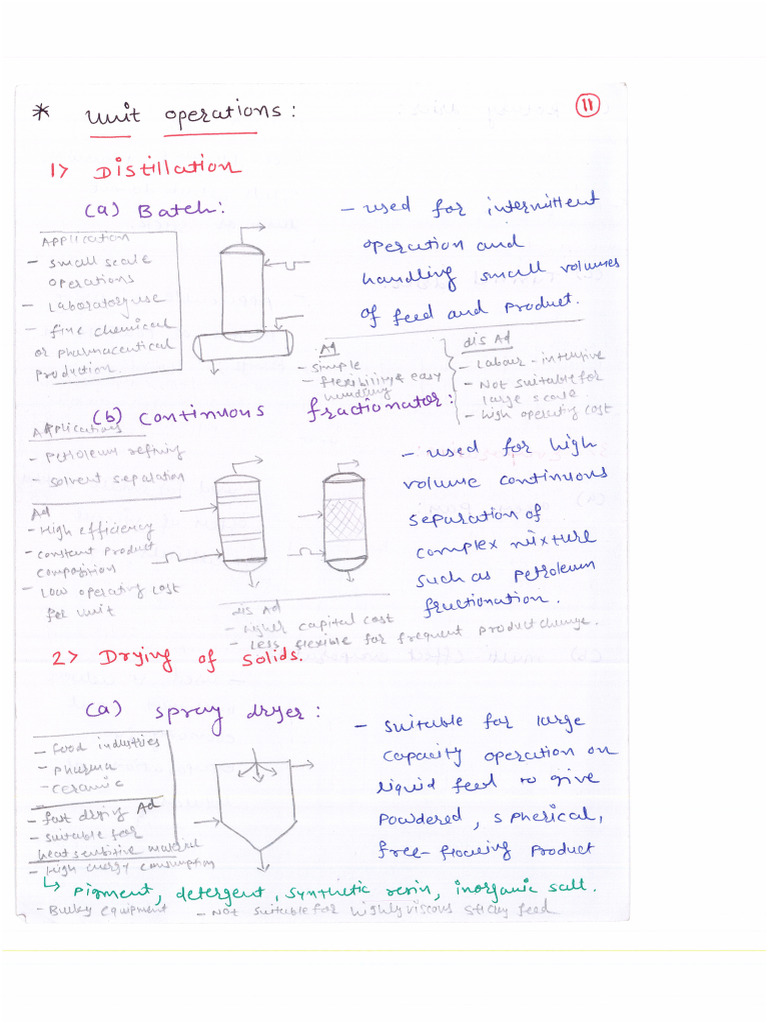 * Unit operations:
11
1> Distillation
(a) Batch:
- used for intermittent
operation and
handling small volumes
of feed and product.
Application
- small scale
operations
- Laboratory use
- fine chemical
or pharmaceutical
production.
Ad
- simple
- flexibility & easy
handling
dis Ad
- Labour-intensive
- Not suitable for
large scale
- High operating cost
(b) continuous fractionator:
Applications
- Petroleum refining
- solvent sepalation
Ad
- High efficiency
- constant product
composition
- Low operating cost
for unit
- used for high
volume continuous
separation of
complex mixture
such as petroleum
fractionation.
dis Ad
- Higher capital cost
- Less flexible for frequent product change.
2> Drying of solids.
(a) spray dryer:
- food industries
- pharma
- ceramic
- fast drying Ad
- suitable for
heat sensitive material
- High energy consumption
- suitable for large
capacity operation on
liquid feed to give
powdered, spherical,
free-flowing product
↳ pigment, detergent, synthetic resin, inorganic salt.
- Bulky equipment - Not suitable for highly viscous sticky feed